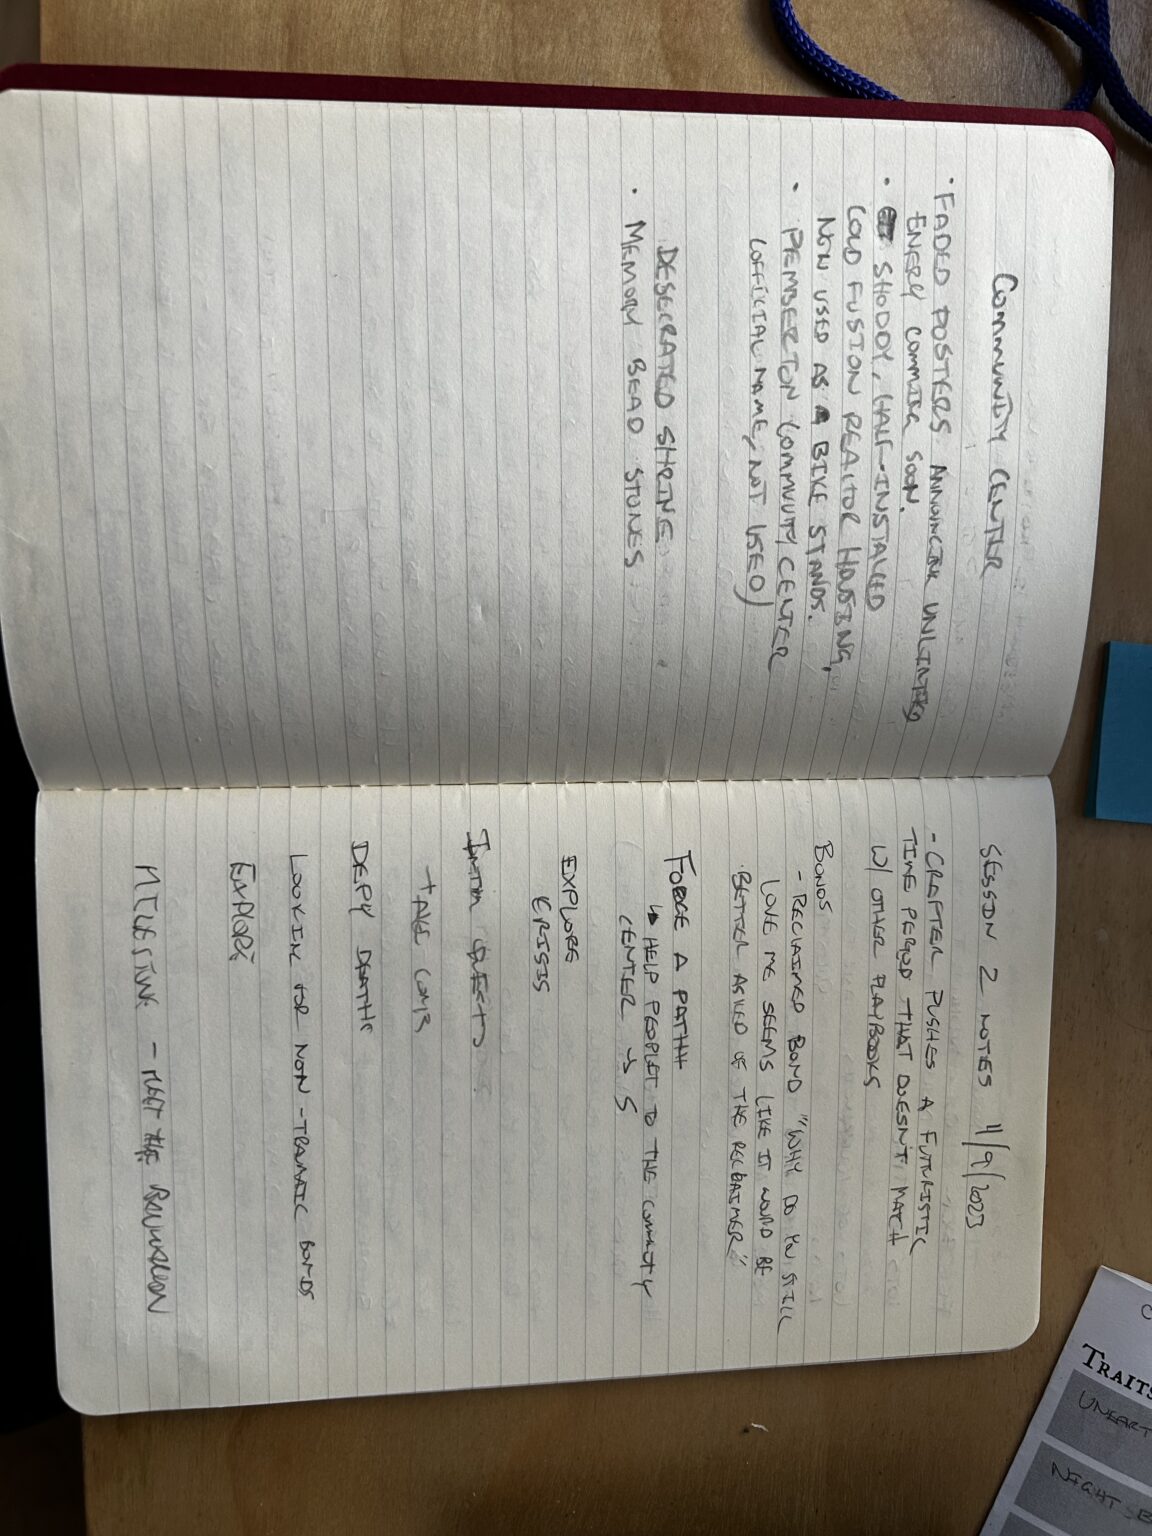 COMMUNITY CENTER
· FADED POSTERS ANNOUNCING UNLIMITED
ENERY COMMING SOON.
· SHODDY, HALF-INSTALLED
COLD FUSION REACTOR HOUSING,
NOW USED AS A BIKE STANDS.
· PEMBERTON COMMUTY CENTER
(OFFICIAL NAME, NOT USED)
DESECRATED SHRINE
· MEMORY BEAD STONES
SESSION 2 NOTES 11/9/2023
- CRAFTER PUSHES A FUTURISTIC
TIME PERIOD THAT DOESN'T MATCH
W/ OTHER PLAYBOOKS
BONDS
- RECLAIMED BOND "WHY DO YOU STILL
LOVE ME SEEMS LIKE IT WOULD BE
BETTER ASKED OF THE RECLAIMER"
FORGE A PATHH
↳ HELP PEOPLET TO THE COMMUTY
CENTER
EXPLORE
CRISIS
TAKE
DEFY DEATH
LOOKING FOR NON-TRAMATIC BONDS
EXPLORE
- MEET THE
TRAITS
UNEART
NIGHT SE